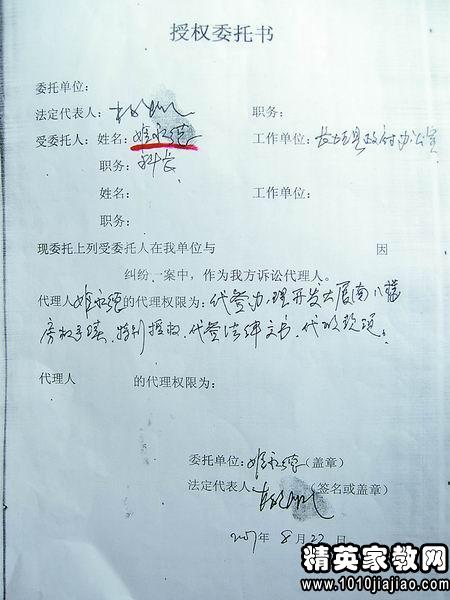 授权委托书
委托单位:
法定代表人: 职务:
受委托人: 姓名: 姬永强 工作单位: 长垣县政府办公室
职务: 科长
姓名: 工作单位:
职务:
现委托上列受委托人在我单位与 因
纠纷一案中,作为我方诉讼代理人。
代理人姬永强的代理权限为: 代签办理开发大厦南八
房权手续、特别授权、代签法律文书、代收款项。
代理人 的代理权限为:
委托单位: 姬永强 (盖章)
法定代表人: (签名或盖章)
2007年 8月 22日
精英家教网
www.1010jiajiao.com